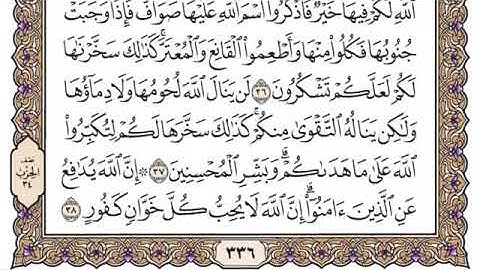 ٱللَّهِ لَكُمْ فِيهَا خَيْرٌ ۖ فَٱذْكُرُوا۟ ٱسْمَ ٱللَّهِ عَلَيْهَا صَوَآفَّ ۖ فَإِذَا وَجَبَتْ
جُنُوبُهَا فَكُلُوا۟ مِنْهَا وَأَطْعِمُوا۟ ٱلْقَانِعَ وَٱلْمُعْتَرَّ ۚ كَذَٰلِكَ سَخَّرْنَٰهَا
لَكُمْ لَعَلَّكُمْ تَشْكُرُونَ ٣٦ لَن يَنَالَ ٱللَّهَ لُحُومُهَا وَلَا دِمَآؤُهَا
وَلَٰكِن يَنَالُهُ ٱلتَّقْوَىٰ مِنكُمْ ۚ كَذَٰلِكَ سَخَّرَهَا لَكُمْ لِتُكَبِّرُوا۟
ٱللَّهَ عَلَىٰ مَا هَدَىٰكُمْ ۗ وَبَشِّرِ ٱلْمُحْسِنِينَ ٣٧ ۞ إِنَّ ٱللَّهَ يُدَٰفِعُ
عَنِ ٱلَّذِينَ ءَامَنُوٓا۟ ۗ إِنَّ ٱللَّهَ لَا يُحِبُّ كُلَّ خَوَّانٍ كَفُورٍ ٣٨
نصف
الحزب
٣٤
٣٣٦